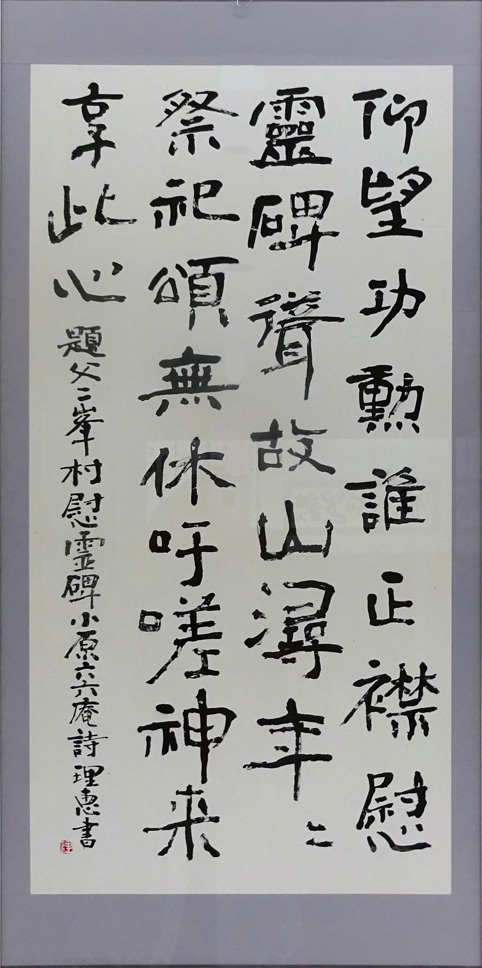 仰望功勲誰正襟慰
靈碑聳故山潯年々
祭祀頌無休吁嗟神来
享此心
題父二峯村慰霊碑小原六六庵詩理恵書